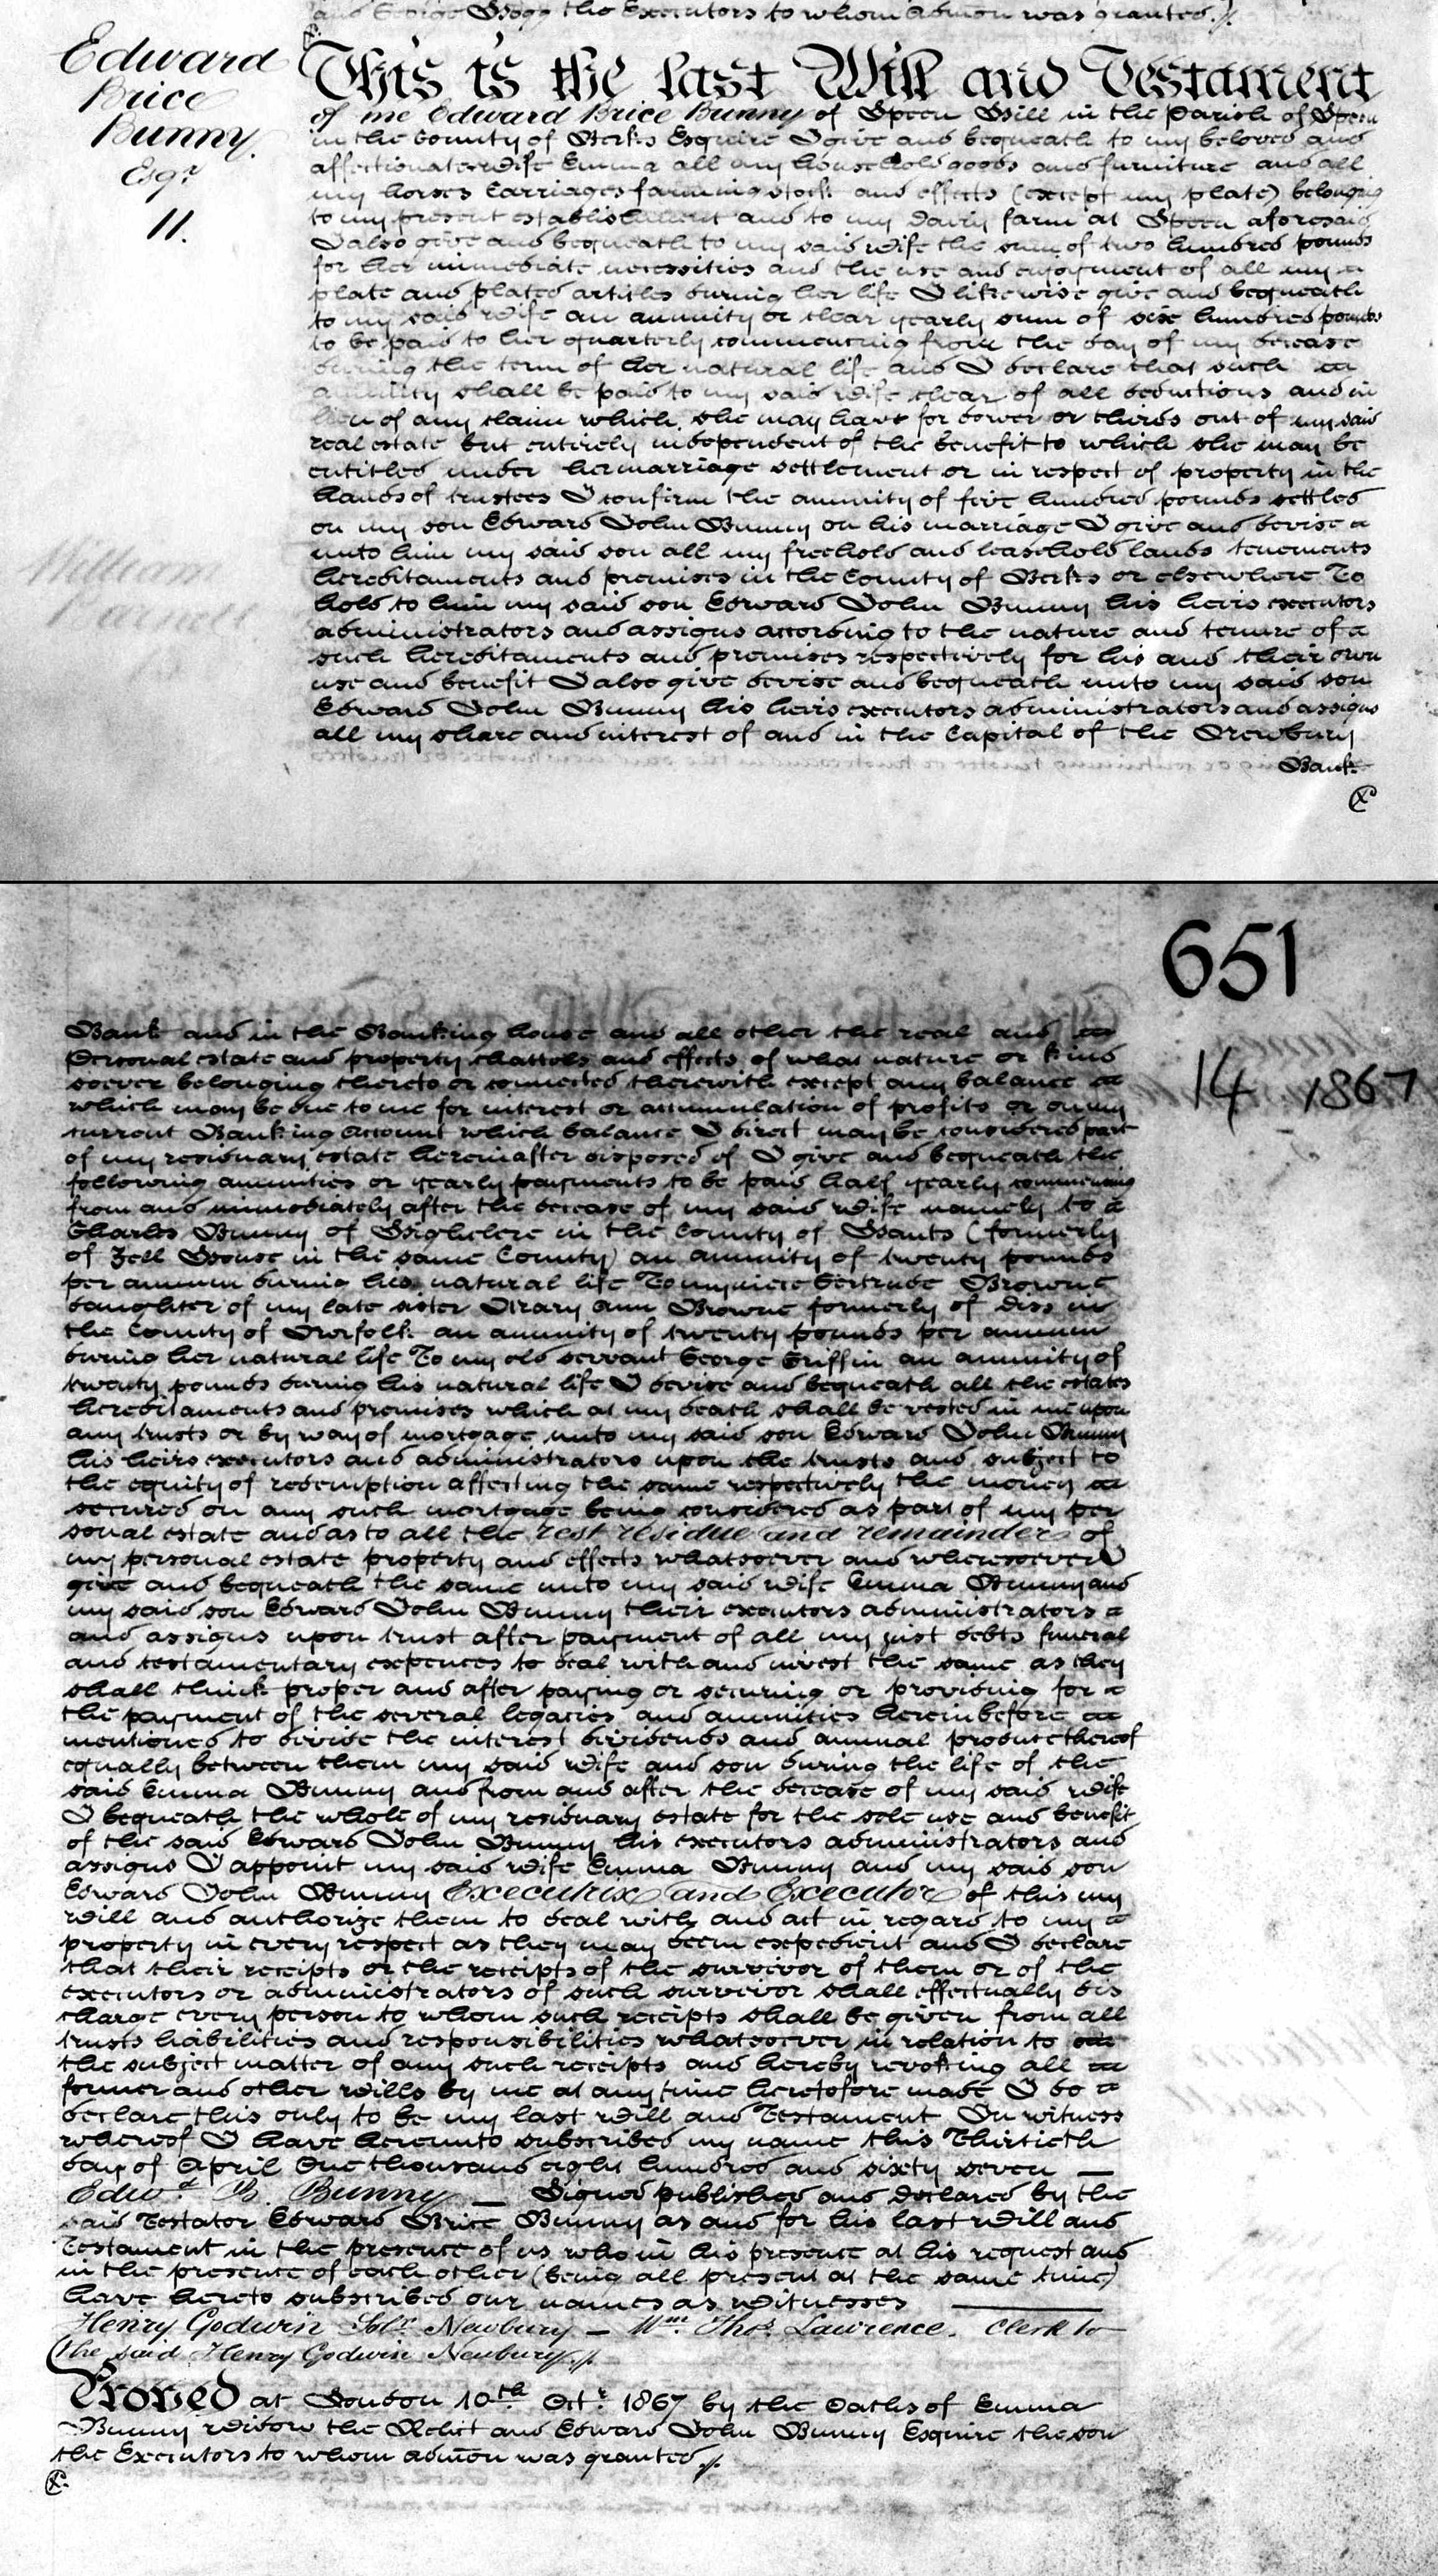 and George Hogg the Executors to whom admon was granted.
Edward
Brice
Bunny.
Esqr
11.
This is the last Will and Testament
of me Edward Brice Bunny of Speen Hill in the Parish of Speen
in the County of Berks Esquire I give and bequeath to my beloved and
affectionate Wife Emma all my household goods and furniture and all
my horses Carriages farming stock and effects (except my plate) belonging
to my present establishment and to my Dairy farm at Speen aforesaid
I also give and bequeath to my said Wife the sum of two hundred pounds
for her immediate necessities and the use and enjoyment of all my
plate and plated articles during her life I likewise give and bequeath
to my said Wife an annuity or clear yearly sum of six hundred pounds
to be paid to her quarterly commencing from the day of my decease
during the term of her natural life and I declare that such
annuity shall be paid to my said Wife clear of all deductions and in
lieu of any claim which she may have for dower or thirds out of my said
real estate but entirely independent of the benefit to which she may be
entitled under her marriage settlement or in respect of property in the
hands of trustees I confirm the annuity of five hundred pounds settled
on my son Edward John Bunny on his marriage I give and devise
unto him my said son all my freehold and leasehold lands tenements
hereditaments and premises in the County of Berks or elsewhere To
hold to him my said son Edward John Bunny his heirs executors
administrators and assigns according to the nature and tenure of
such hereditaments and premises respectively for his and their own
use and benefit I also give devise and bequeath unto my said son
Edward John Bunny his heirs executors administrators and assigns
all my share and interest of and in the Capital of the Newbury
Bank
William
651
14 1867
Bank and in the Banking house and all other the real and
Personal estate and property chattels and effects of what nature or kind
soever belonging thereto or connected therewith except any balance
which may be due to me for interest or accumulation of profits or on my
current Banking Account which balance I direct may be considered part
of my residuary estate hereinafter disposed of I give and bequeath the
following annuities or yearly payments to be paid half yearly commencing
from and immediately after the decease of my said Wife namely to
Charles Bunny of Highclere in the County of Hants (formerly
of Zell House in the same County) an annuity of twenty pounds
per annum during his natural life To my niece Gertrude Browne
daughter of my late sister Mary Ann Browne formerly of Diss in
the County of Norfolk an annuity of twenty pounds per annum
during her natural life To my old servant George Griffin an annuity of
twenty pounds during his natural life I devise and bequeath all the estates
hereditaments and premises which at my death shall be vested in me upon
any trusts or by way of mortgage unto my said son Edward John Bunny
his heirs executors and administrators upon the trusts and subject to
the equity of redemption affecting the same respectively the money
secured on any such mortgage being considered as part of my per
sonal estate and as to all the rest residue and remainder of
my personal estate property and effects whatsoever and wheresoever I
give and bequeath the same unto my said Wife Emma Bunny and
my said son Edward John Bunny their executors administrators
and assigns upon trust after payment of all my just debts funeral
and testamentary expences to deal with and invest the same as they
shall think proper and after paying or securing or providing for
the payment of the several legacies and annuities hereinbefore
mentioned to divide the interest dividends and annual produce thereof
equally between them my said Wife and son during the life of the
said Emma Bunny and from and after the decease of my said Wife
I bequeath the whole of my residuary estate for the sole use and benefit
of the said Edward John Bunny his executors administrators and
assigns I appoint my said Wife Emma Bunny and my said son
Edward John Bunny Executrix and Executor of this my
Will and authorize them to deal with and act in regard to my
property in every respect as they may deem expedient and I declare
that their receipts or the receipts of the survivor of them or of the
executors or administrators of such survivor shall effectually dis
charge every person to whom such receipts shall be given from all
trusts liabilities and responsibilities whatsoever in relation to
the subject matter of any such receipts and hereby revoking all
former and other Wills by me at any time heretofore made I do
declare this only to be my last Will and Testament In witness
whereof I have hereunto subscribed my name this Thirtieth
day of April One thousand eight hundred and sixty seven —
Edwd. B. Bunny — Signed published and Declared by the
said Testator Edward Brice Bunny as and for his last Will and
Testament in the presence of us who in his presence at his request and
in the presence of each other (being all present at the same time)
have hereto subscribed our names as Witnesses
Henry Godwin Solr. Newbury — Wm. Thos. Lawrence. Clerk to
the said Henry Godwin Newbury.
Proved at London 10th Octr. 1867 by the Oaths of Emma
Bunny Widow the Relict and Edward John Bunny Esquire the son
the Executors to whom admon was granted